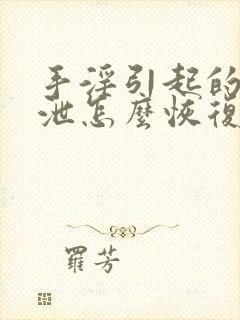 手淫引起的
泄怎麼恢復
羅芳